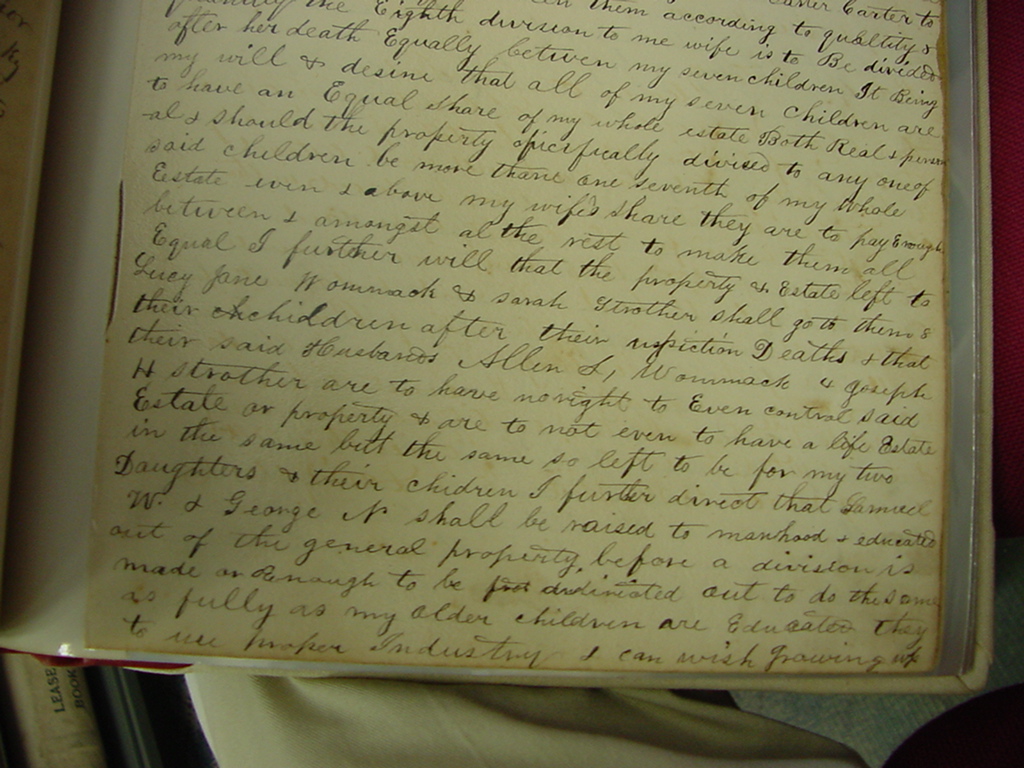 LEASE
BOOK
after her death Equally between my seven children It Being
my will & desire that all of my seven children are
to have an Equal share of my whole estate Both Real &
al & should the property specifically divised to any one of
said children be more thane one seventh of my whole
Estate even & above my wifes share they are to pay Enough
between & amongst al the rest to make them all
Equal I further will that the property & Estate left to
Lucy Jane Wommack & sarah Strother shall go to them &
their chchildren after their respiction Deaths & that
their said Husbands Allen L, Wommack & Joseph
H Strother are to have no right to Even control said
Estate or property & are to not even to have a life Estate
in the same but the same so left to be for my two
Daughters & their chidren I further direct that Samuel
W. & George N shall be raised to manhood & educated
out of the general property before a division is
made or Enough to be divinited out to do the same
as fully as my older children are Educated They
to use proper Industry I can wish growing up